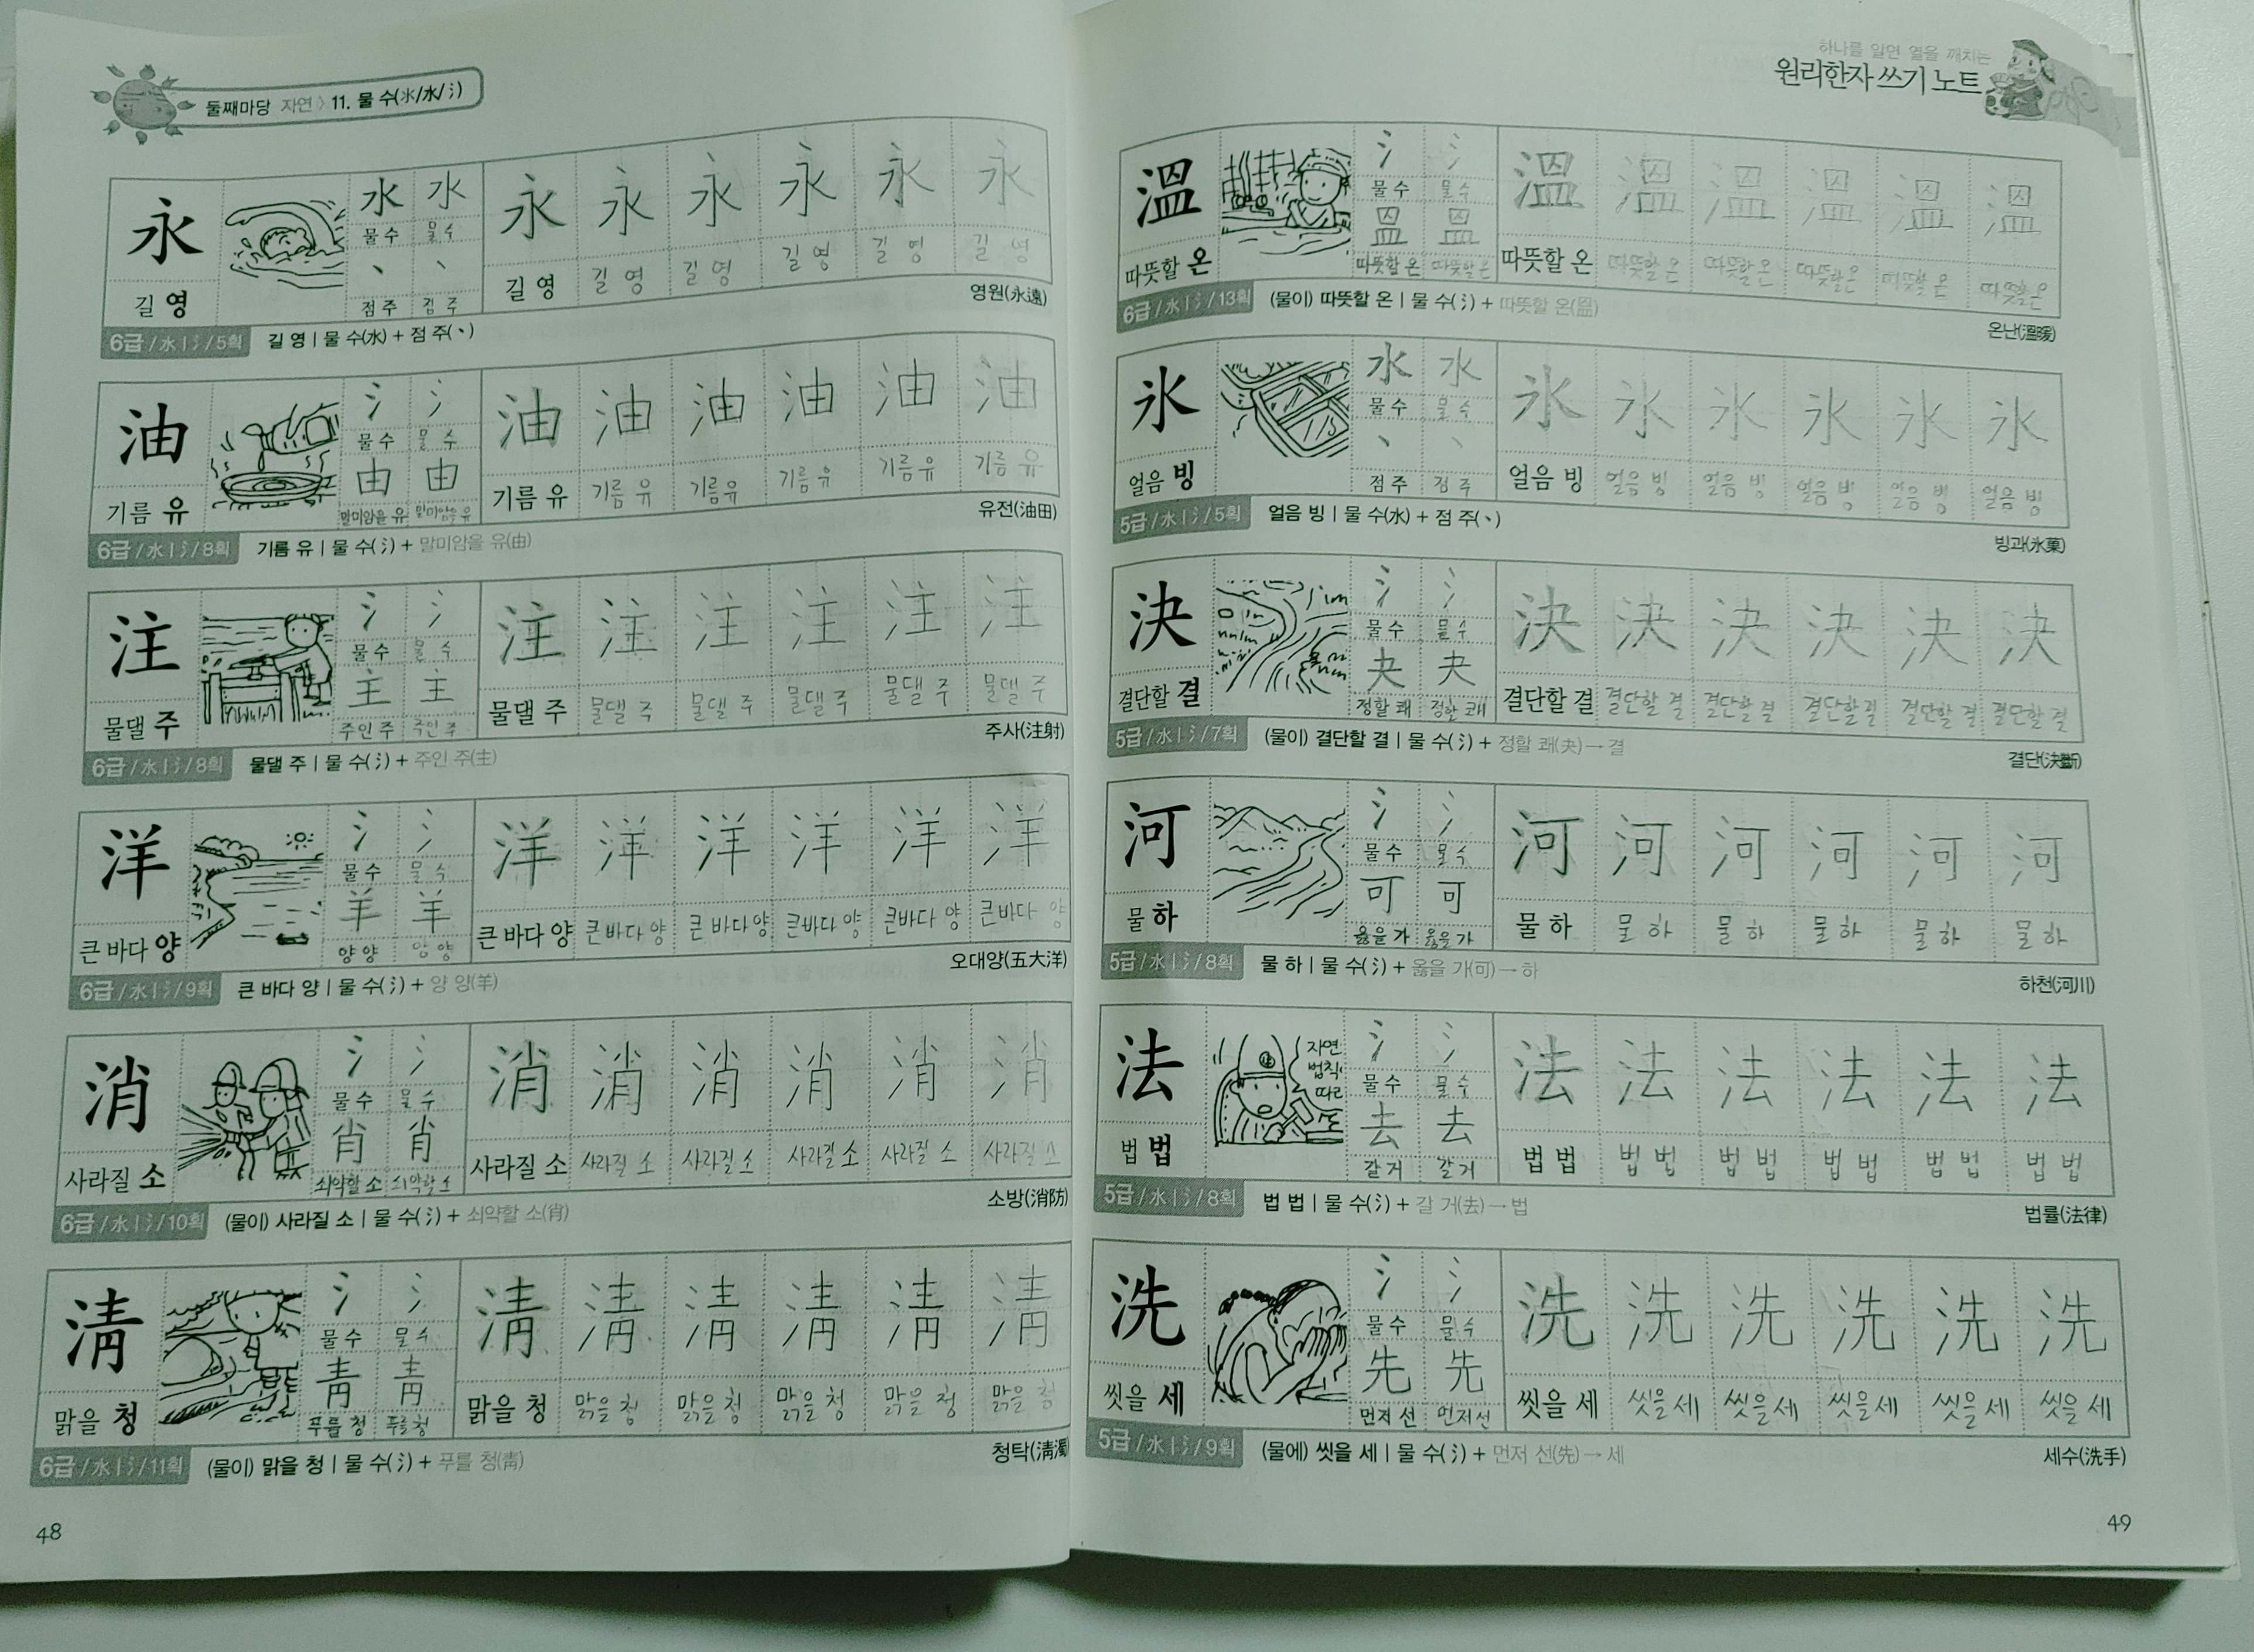 둘째마당 자연 > 11. 물 수(氺/水/氵)
永 水 水 永 永 永 永 永 永
물 수 물 수
丶 丶
길 영 점 주 점 주 길 영 길 영 길 영 길 영 길 영 길 영
6급/水|氵/5획 길 영 | 물 수(水) + 점 주(丶) 영원(永遠)
油 氵 氵 油 油 油 油 油 油
물 수 물 수
由 由
기름 유 말미암을 유 말미암을 유 기름 유 기름 유 기름 유 기름 유 기름 유 기름 유
6급/水|氵/8획 기름 유 | 물 수(氵) + 말미암을 유(由) 유전(油田)
注 氵 氵 注 注 注 注 注 注
물 수 물 수
主 主
물댈 주 주인 주 주인 주 물댈 주 물댈 주 물댈 주 물댈 주 물댈 주 물댈 주
6급/水|氵/8획 물댈 주 | 물 수(氵) + 주인 주(主) 주사(注射)
洋 氵 氵 洋 洋 洋 洋 洋 洋
물 수 물 수
羊 羊
큰 바다 양 양 양 양 양 큰 바다 양 큰 바다 양 큰 바다 양 큰바다 양 큰바다 양 큰바다 양
6급/水|氵/9획 큰 바다 양 | 물 수(氵) + 양 양(羊) 오대양(五大洋)
消 氵 氵 消 消 消 消 消 消
물 수 물 수
肖 肖
사라질 소 쇠약할 소 쇠약할 소 사라질 소 사라질 소 사라질 소 사라질 소 사라질 소 사라질 소
6급/水|氵/10획 (물이) 사라질 소 | 물 수(氵) + 쇠약할 소(肖) 소방(消防)
淸 氵 氵 淸 淸 淸 淸 淸 淸
물 수 물 수
靑 靑
맑을 청 푸를 청 푸를 청 맑을 청 맑을 청 맑을 청 맑을 청 맑을 청 맑을 청
6급/水|氵/11획 (물이) 맑을 청 | 물 수(氵) + 푸를 청(靑) 청탁(淸濁
48
하나를 알면 열을 깨치는
원리한자 쓰기 노트
溫 氵 氵 溫 溫 溫 溫 溫 溫
물 수 물 수
𥁕 𥁕
따뜻할 온 따뜻할 온 따뜻할 온 따뜻할 온 따뜻할 온 따뜻할 온 따뜻할 온 따뜻할 온 따뜻할 온
6급/水|氵/13획 (물이) 따뜻할 온 | 물 수(氵) + 따뜻할 온(𥁕) 온난(溫暖)
氷 水 水 氷 氷 氷 氷 氷 氷
물 수 물 수
丶 丶
얼음 빙 점 주 점 주 얼음 빙 얼음 빙 얼음 빙 얼음 빙 얼음 빙 얼음 빙
5급/水|氵/5획 얼음 빙 | 물 수(水) + 점 주(丶) 빙과(氷菓)
決 氵 氵 決 決 決 決 決 決
물 수 물 수
夬 夬
결단할 결 정할 쾌 정할 쾌 결단할 결 결단할 결 결단할 결 결단할 결 결단할 결 결단할 결
5급/水|氵/7획 (물이) 결단할 결 | 물 수(氵) + 정할 쾌(夬)→결 결단(決斷)
河 氵 氵 河 河 河 河 河 河
물 수 물 수
可 可
물 하 옳을 가 옳을 가 물 하 물 하 물 하 물 하 물 하 물 하
5급/水|氵/8획 물 하 | 물 수(氵) + 옳을 가(可)→하 하천(河川)
法 자연 법칙 따라 氵 氵 法 法 法 法 法 法
물 수 물 수
去 去
법 법 갈 거 갈 거 법 법 법 법 법 법 법 법 법 법 법 법
5급/水|氵/8획 법 법 | 물 수(氵) + 갈 거(去)→법 법률(法律)
洗 氵 氵 洗 洗 洗 洗 洗 洗
물 수 물 수
先 先
씻을 세 먼저 선 먼저 선 씻을 세 씻을 세 씻을 세 씻을 세 씻을 세 씻을 세
5급/水|氵/9획 (물에) 씻을 세 | 물 수(氵) + 먼저 선(先)→세 세수(洗手)
49